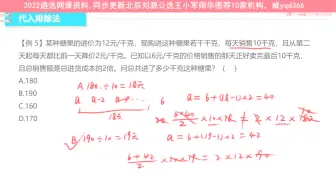 2022遴选网课资料,同步更新北辰刘源公选王小军舜华图等10家机构，威yqd366
代入排除法
【例5】某种糖果的进价为12元/千克，现购进这种糖果若干千克，每天销售10千克，且从第
二天起每天都比前一天降价2元/千克。已知以6元/千克的价格销售的那天正好卖完最后10千克，
且总销售额是总进货成本的2倍。问总共进了多少千克这种糖果？（ ）
A.180
B.190
C.160
D.170
A 180÷10=18天
a a-2 6
18天
a=6+(18-1)×2=40
B 190÷10=19天
a=6+(19-1)×2=42